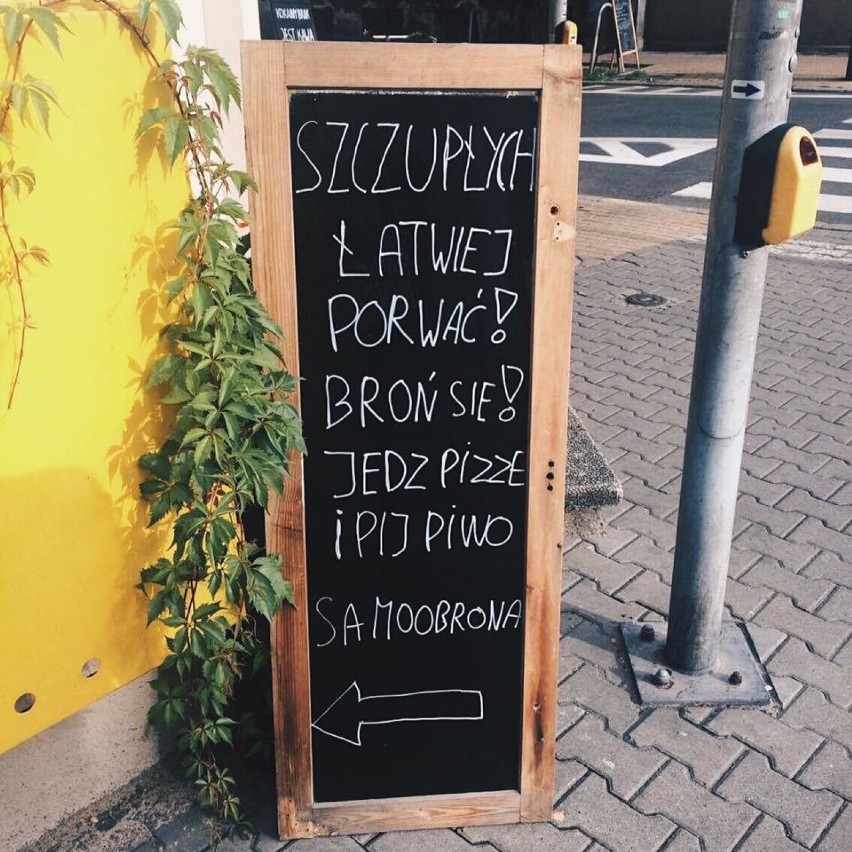 JEST KAWA
SZCZUPŁYCH
ŁATWIEJ
PORWAĆ!
BROŃ SIE!
JEDZ PIZZE
I PIJ PIWO
SAMOOBRONA